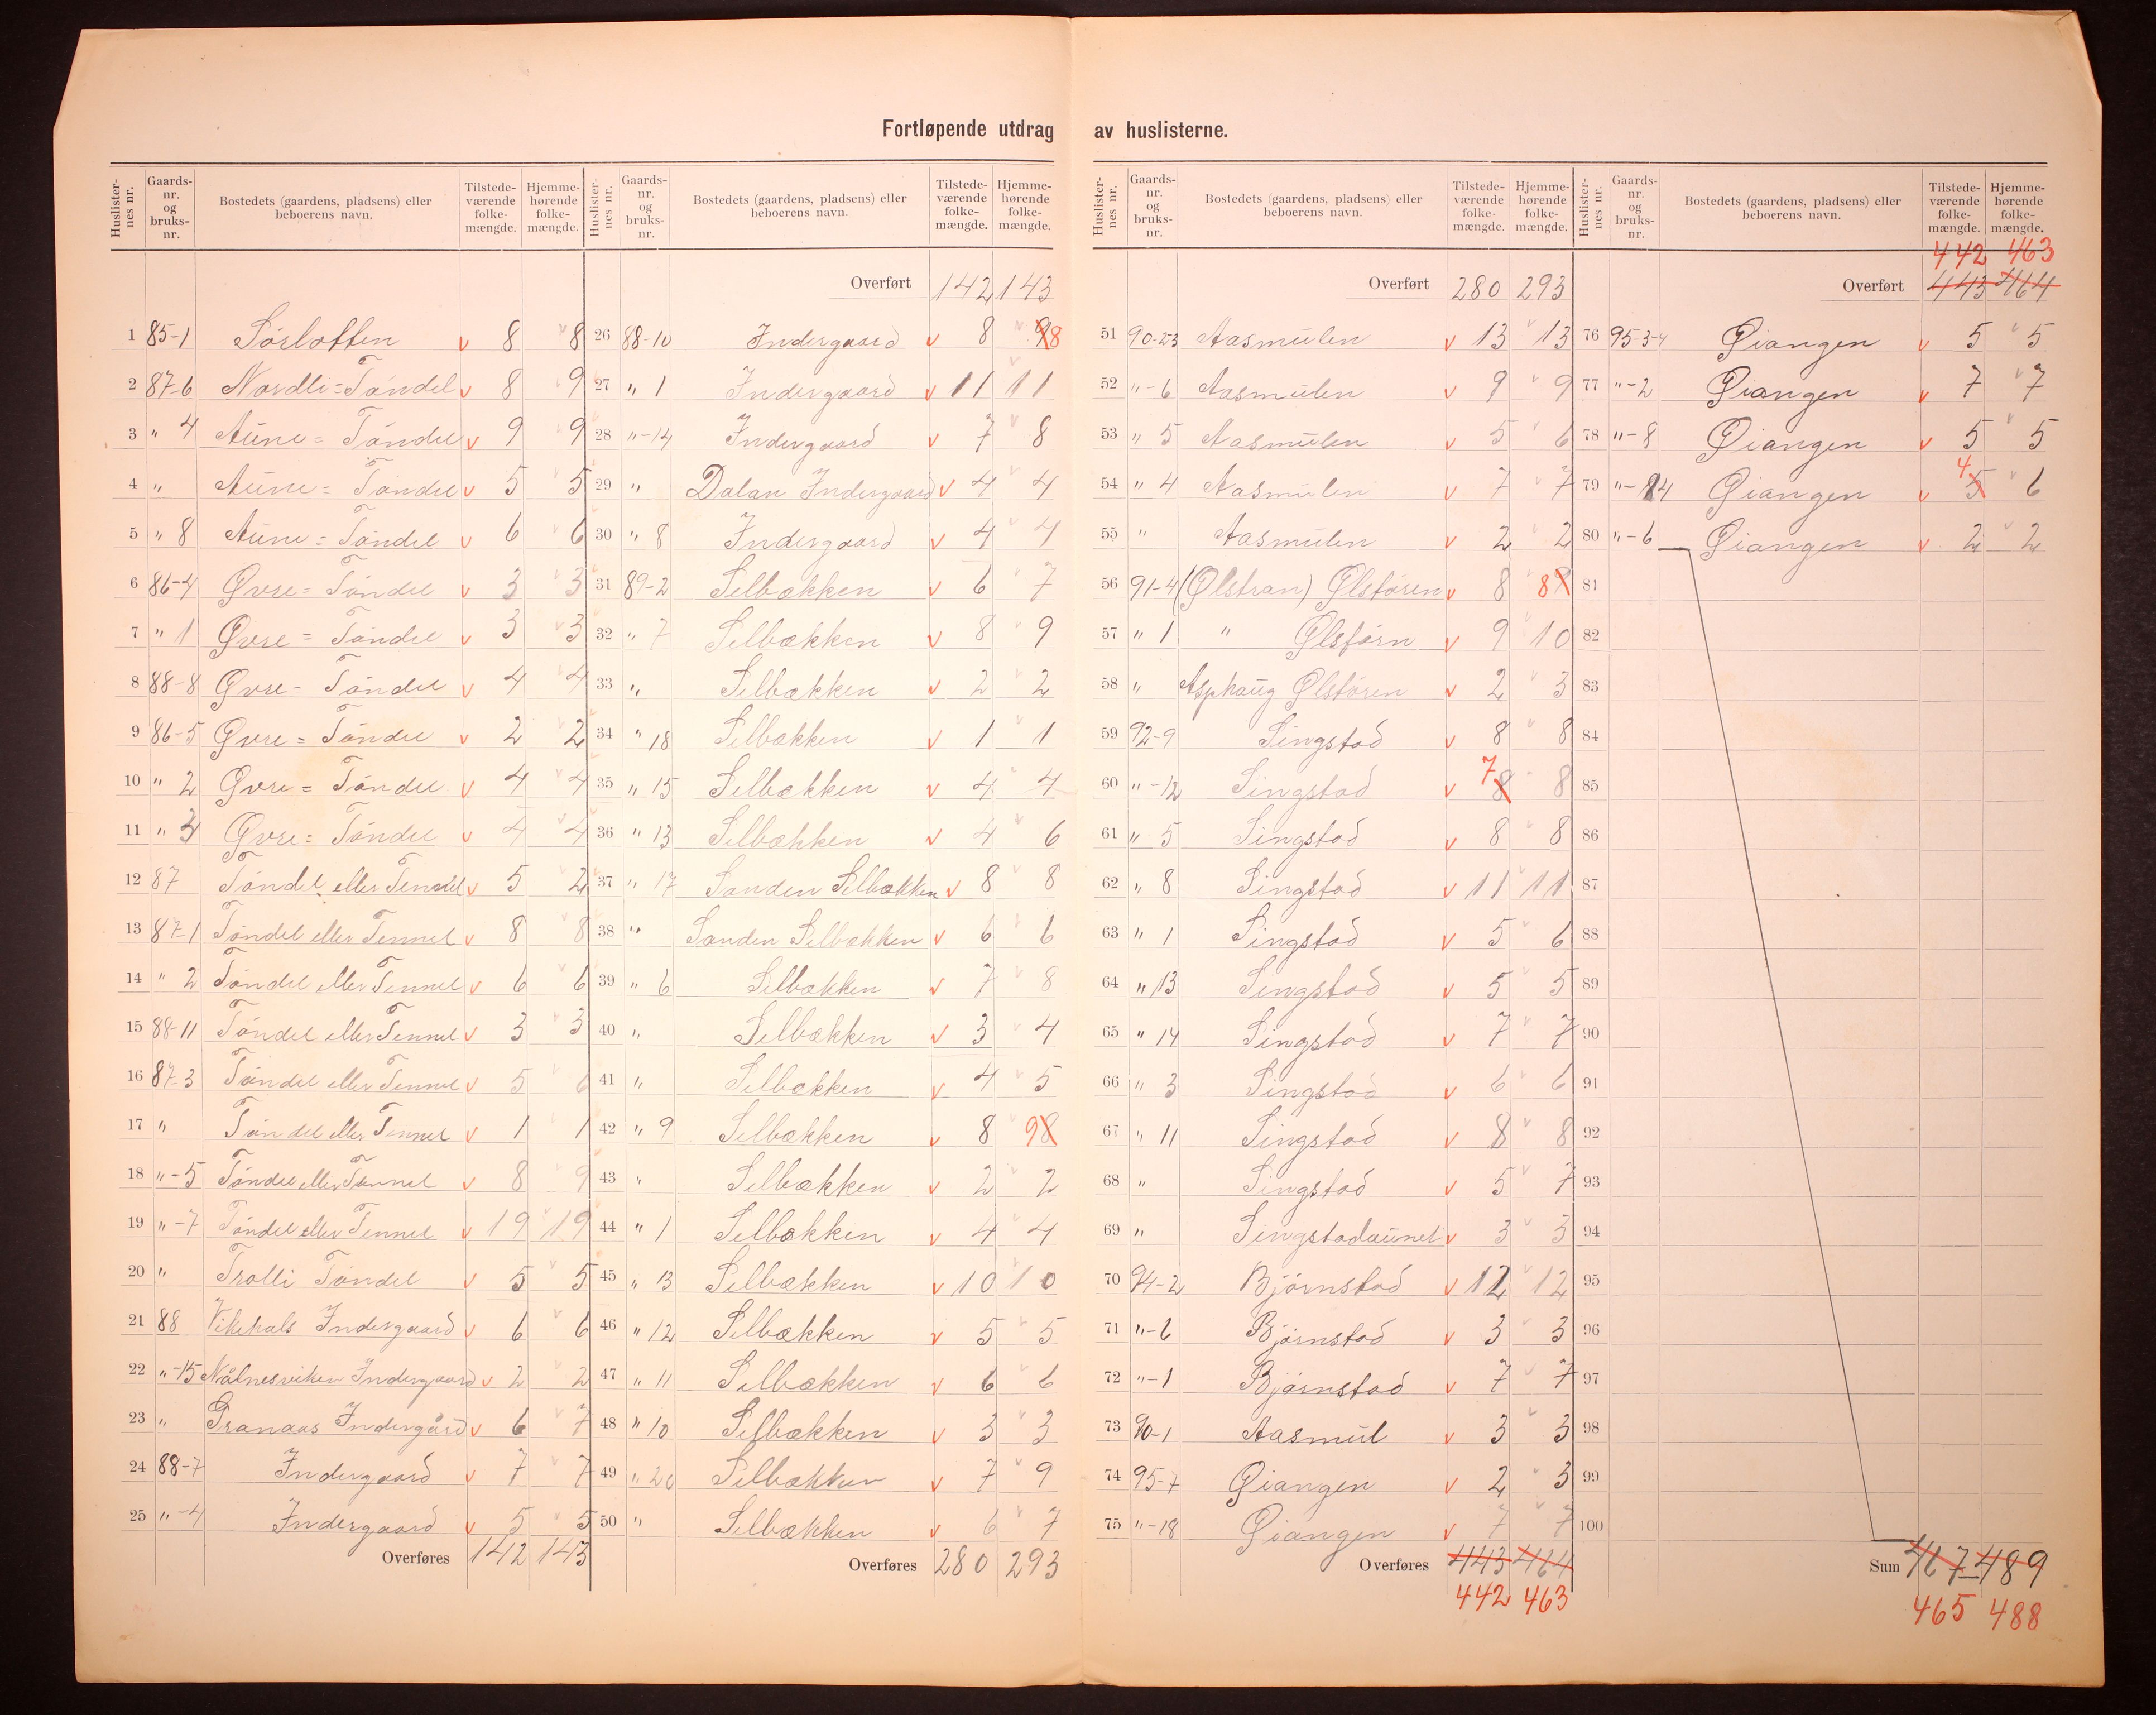 Fortløpende utdrag av huslisterne.
Huslister-nes nr. Gaards-nr. og bruks-nr. Bostedets (gaardens, pladsens) eller beboerens navn. Tilstede-værende folke-mængde. Hjemme-hørende folke-mængde.
1 85-1 Sørløtten 8 8
2 87-6 Nordli=Tøndel 8 9
3 " 4 Aune=Tøndel 9 9
4 " Aune=Tøndel 5 5
5 " 8 Aune=Tøndel 6 6
6 86-4 Øvre=Tøndel 3 3
7 " 1 Øvre=Tøndel 3 3
8 88-8 Øvre=Tøndel 4 4
9 86-5 Øvre=Tøndel 2 2
10 " 2 Øvre=Tøndel 4 4
11 " 3 Øvre=Tøndel 4 4
12 87 Tøndel eller Tennel 5 2
13 87-1 Tøndel eller Tennel 8 8
14 " 2 Tøndel eller Tennel 6 6
15 88-11 Tøndel eller Tennel 3 3
16 87-3 Tøndel eller Tennel 5 6
17 " Tøndel eller Tennel 1 1
18 "-5 Tøndel eller Tennel 8 9
19 "-7 Tøndel eller Tennel 19 19
20 " Trolli Tøndel 5 5
21 88 Vikehals Indergaard 6 6
22 "-15 Nålnesviken Indergaard 2 2
23 " Granaas Indergård 6 7
24 88-7 Indergaard 7 7
25 "-4 Indergaard 5 5
Overføres 142 143
Huslister-nes nr. Gaards-nr. og bruks-nr. Bostedets (gaardens, pladsens) eller beboerens navn. Tilstede-værende folke-mængde. Hjemme-hørende folke-mængde.
Overført 142 143
26 88-10 Indergaard 8 9 8
27 " 1 Indergaard 11 11
28 "-14 Indergaard 7 8
29 " Dalan Indergaard 4 4
30 " 8 Indergaard 4 4
31 89-2 Selbækken 6 7
32 " 7 Selbækken 8 9
33 " Selbækken 2 2
34 " 18 Selbækken 1 1
35 " 15 Selbækken 4 4
36 " 13 Selbækken 4 6
37 " 17 Sanden Selbækken 8 8
38 " Sanden Selbækken 6 6
39 " 6 Selbækken 7 8
40 " Selbækken 3 4
41 " Selbækken 4 5
42 " 9 Selbækken 8 9 8
43 " Selbækken 2 2
44 " 1 Selbækken 4 4
45 " 13 Selbækken 10 10
46 " 12 Selbækken 5 5
47 " 11 Selbækken 6 6
48 " 10 Selbækken 3 3
49 " 20 Selbækken 7 9
50 " Selbækken 6 7
Overføres 280 293
Huslister-nes nr. Gaards-nr. og bruks-nr. Bostedets (gaardens, pladsens) eller beboerens navn. Tilstede-værende folke-mængde. Hjemme-hørende folke-mængde.
Overført 280 293
51 90-2-3 Aasmulen 13 13
52 "-6 Aasmulen 9 9
53 " 5 Aasmulen 5 6
54 " 4 Aasmulen 7 7
55 " Aasmulen 2 2
56 91-4 (Ølstran) Ølstøren 8 8 9
57 " 1 " Ølstørn 9 10
58 " Asphaug Ølstøren 2 3
59 92-9 Singstad 8 8
60 "-12 Singstad 7 8 8
61 " 5 Singstad 8 8
62 " 8 Singstad 11 11
63 " 1 Singstad 5 6
64 " 13 Singstad 5 5
65 " 14 Singstad 7 7
66 " 3 Singstad 6 6
67 " 11 Singstad 8 8
68 " Singstad 5 7
69 " Singstadaunet 3 3
70 94-2 Bjørnstad 12 12
71 "-6 Bjørnstad 3 3
72 "-1 Bjørnstad 7 7
73 90-1 Aasmul 3 3
74 95-7 Øiangen 2 3
75 "-18 Øiangen 7 7
Overføres 443 464
442 463
Huslister-nes nr. Gaards-nr. og bruks-nr. Bostedets (gaardens, pladsens) eller beboerens navn. Tilstede-værende folke-mængde. Hjemme-hørende folke-mængde.
442 463
Overført 443 464
76 95-3-4 Øiangen 5 5
77 "-2 Øiangen 7 7
78 "-8 Øiangen 5 5
79 "-14 Øiangen 4 5 6
80 "-6 Øiangen 2 2
81
82
83
84
85
86
87
88
89
90
91
92
93
94
95
96
97
98
99
100
Sum 467 489
465 488